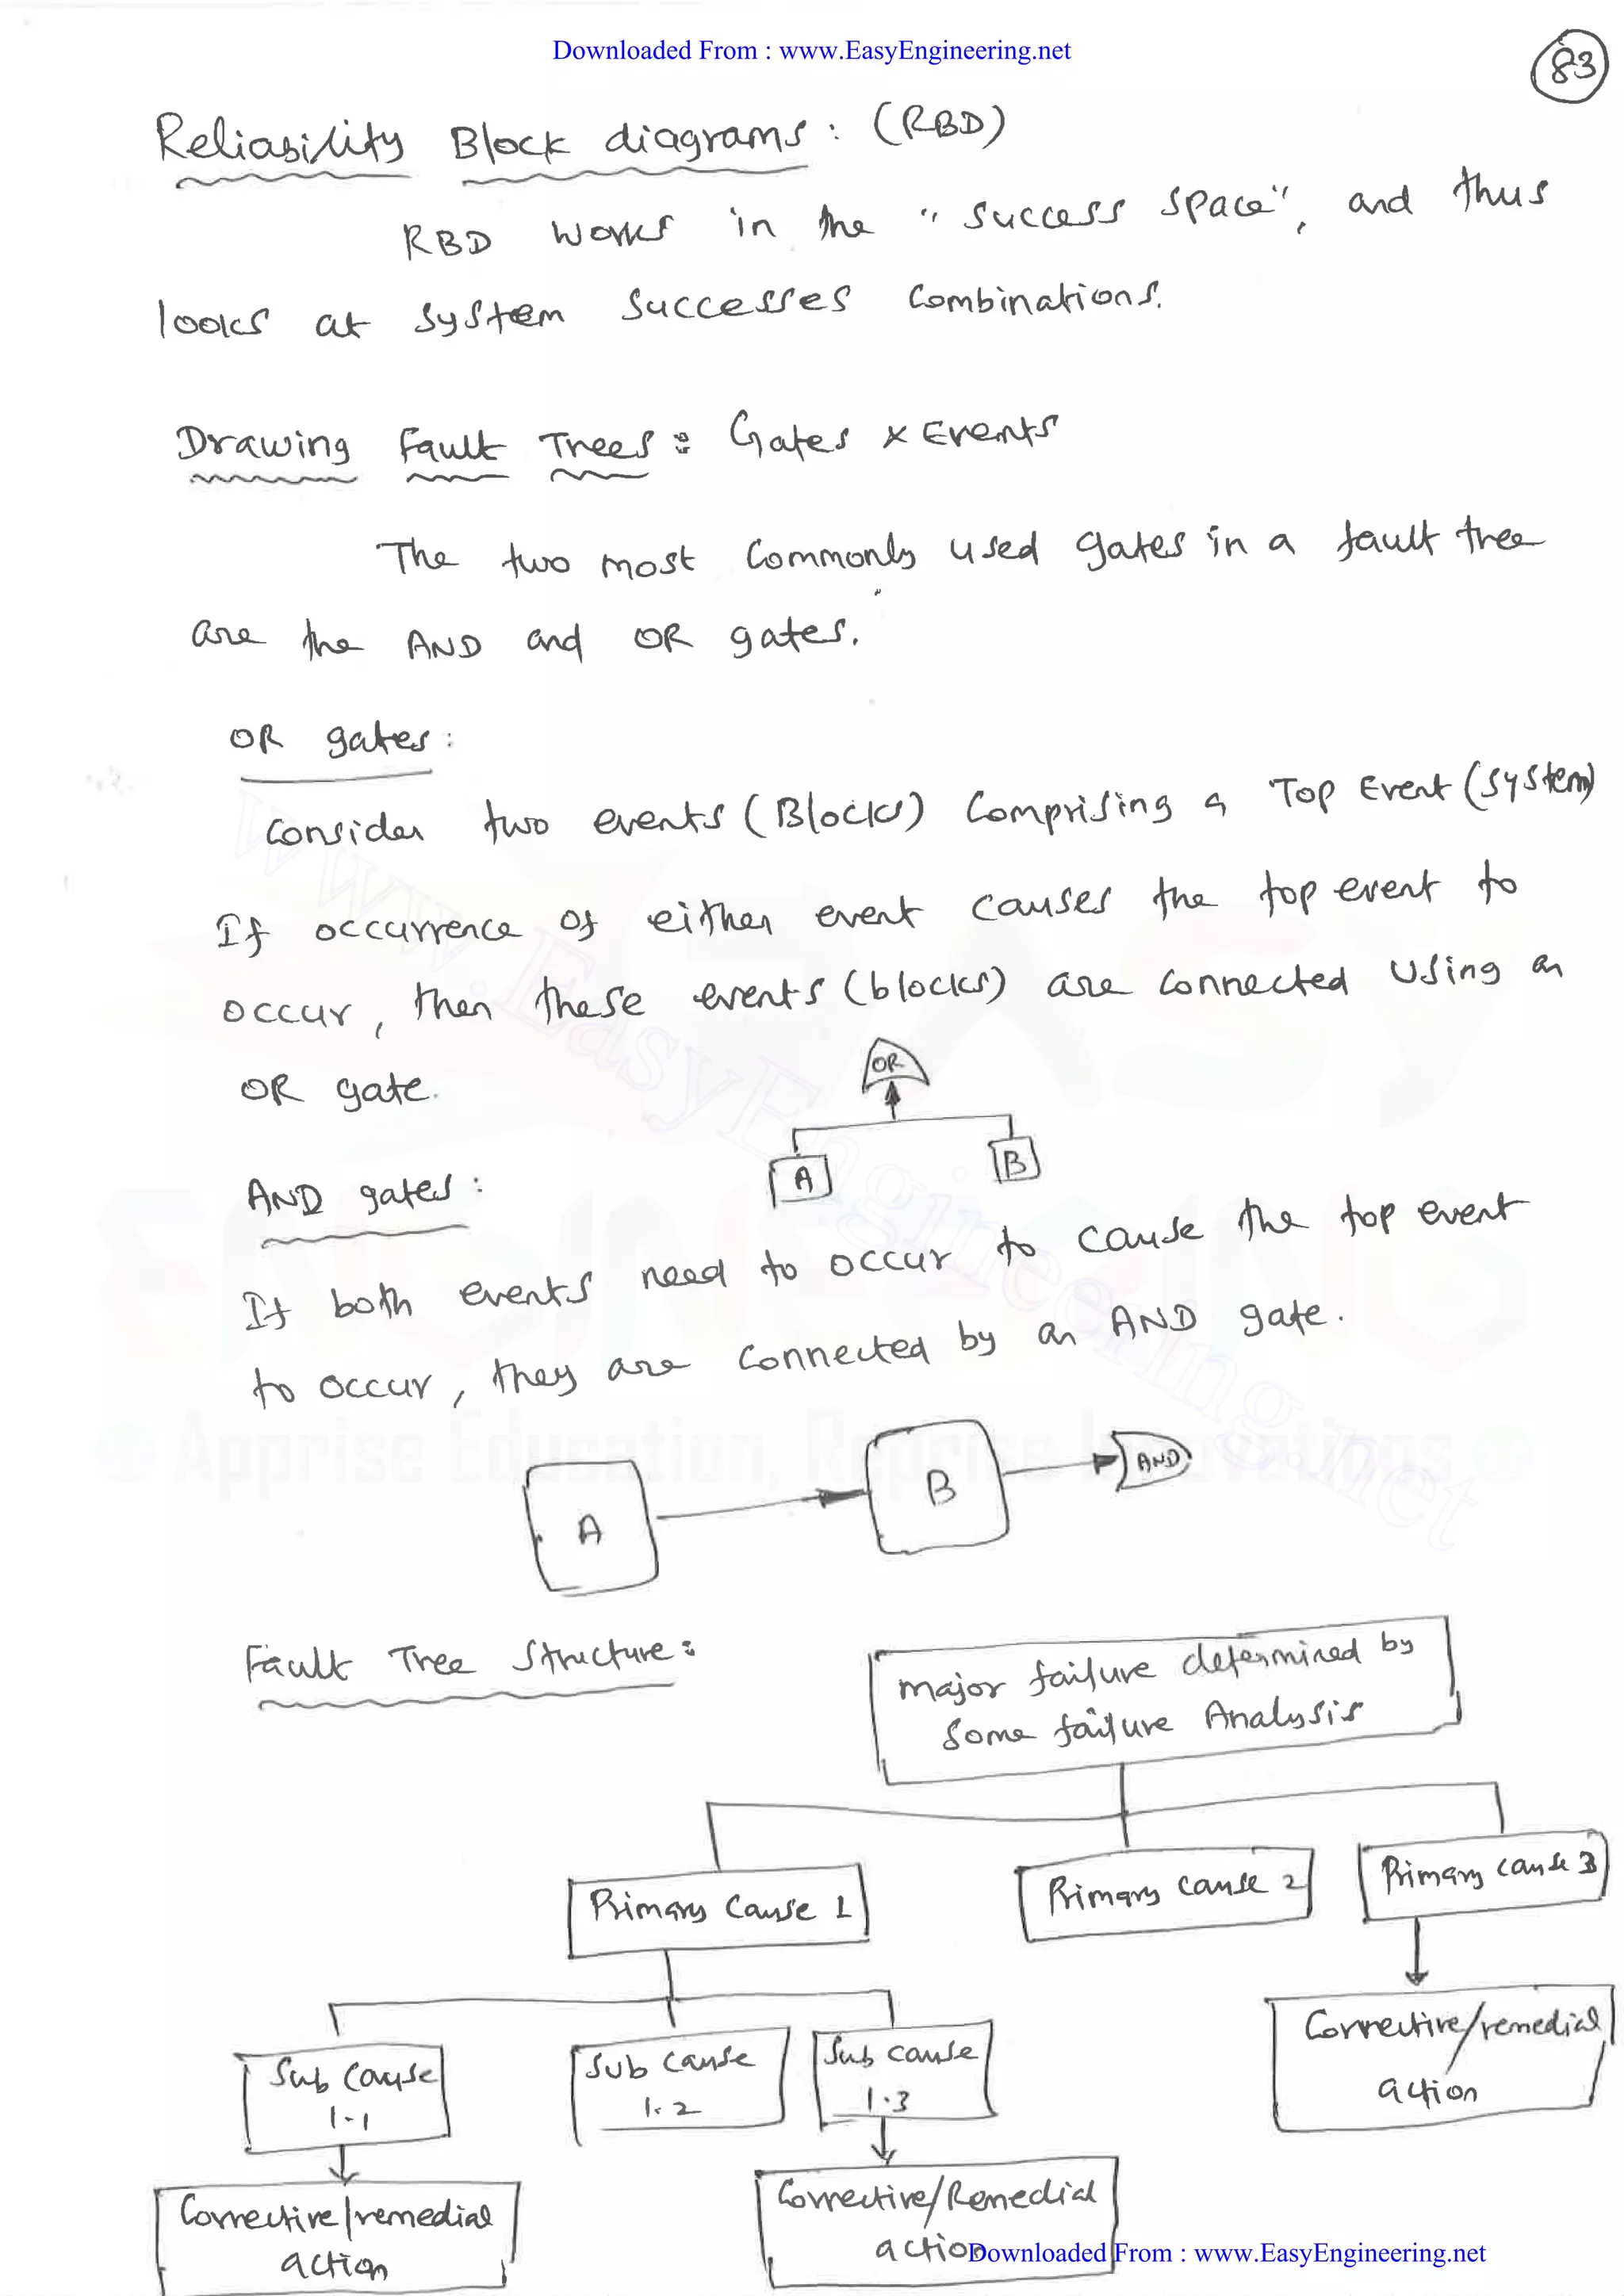 Downloaded From : www.EasyEngineering.net
83
Reliability Block diagrams : (RBD)
RBD works in the "success space", and thus
looks at system successes combinations.
Drawing Fault Trees : Gates x Events
The two most commonly used gates in a fault tree
are the AND and OR gates.
OR gates :
Consider two events (Blocks) comprising a Top Event (system)
If occurrence of either event causes the top event to
occur, then these events (blocks) are connected using an
OR gate.
OR
A
B
AND gates :
If both events need to occur to cause the top event
to occur, they are connected by an AND gate.
A
B
AND
Fault Tree Structure :
major failure determined by
some failure Analysis
Primary Cause 1
Primary cause 2
Primary cause 3
Sub Cause
1.1
Sub cause
1.2
Sub cause
1.3
Corrective/remedial
action
Corrective/remedial
action
Corrective/Remedial
action
Downloaded From : www.EasyEngineering.net
www.EasyEngineering.net
EASY
ENGINEERING
Apprise Education, Reprise Innovations